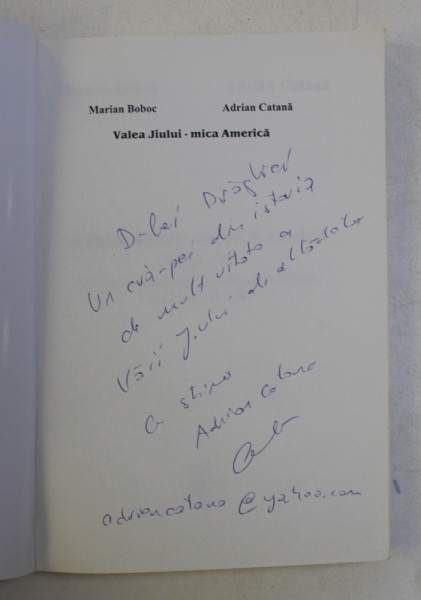 Marian Boboc Adrian Catană
Valea Jiului - mica América
D-lui Drăghici
Un crâm-pei din istoria
de mult uitata a
Văii Jiului de altădata
Cu stima
Adrian Catana
adriancatana@yahoo.com